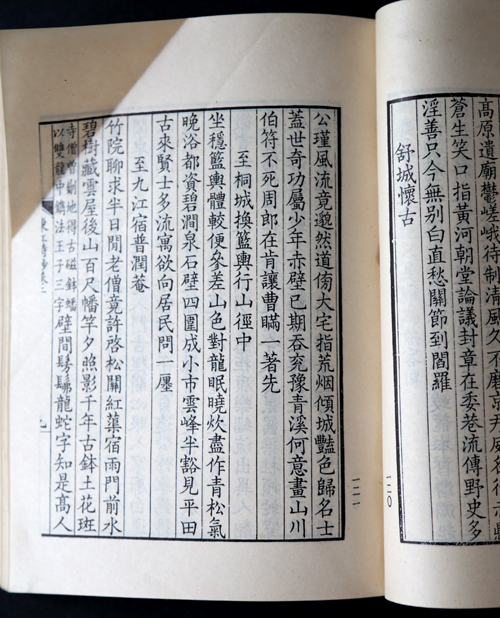 高原遺廟鬱嵯峨待制清風久不
蒼生笑口指黃河朝堂論議封章在委巷流傳野史多
淫善只今無別白直愁關節到閻羅
舒城懷古
一二〇
公瑾風流竟邈然道傍大宅指荒烟傾城豔色歸名士
蓋世奇功屬少年赤壁已期吞兗豫青溪何意畫山川
伯符不死周郎在肯讓曹瞞一著先
至桐城換籃輿行山徑中
坐穩籃輿體較便參差山色對龍眠曉炊盡作青松氣
晚浴都資碧澗泉石壁四圍成小市雲峰半豁見平田
古來賢士多流寓欲向居民問一廛
至九江宿普潤菴
竹院聊求半日閒老僧竟許啓松關紅蕖宿雨門前水
碧樹藏雲屋後山百尺幡竿夕照影千年古鉢土花斑
寺僧劚地得古磁鉢蟠
以雙龍中鐫法王子三字
壁間髣髴龍蛇字知是高人
九
一二一